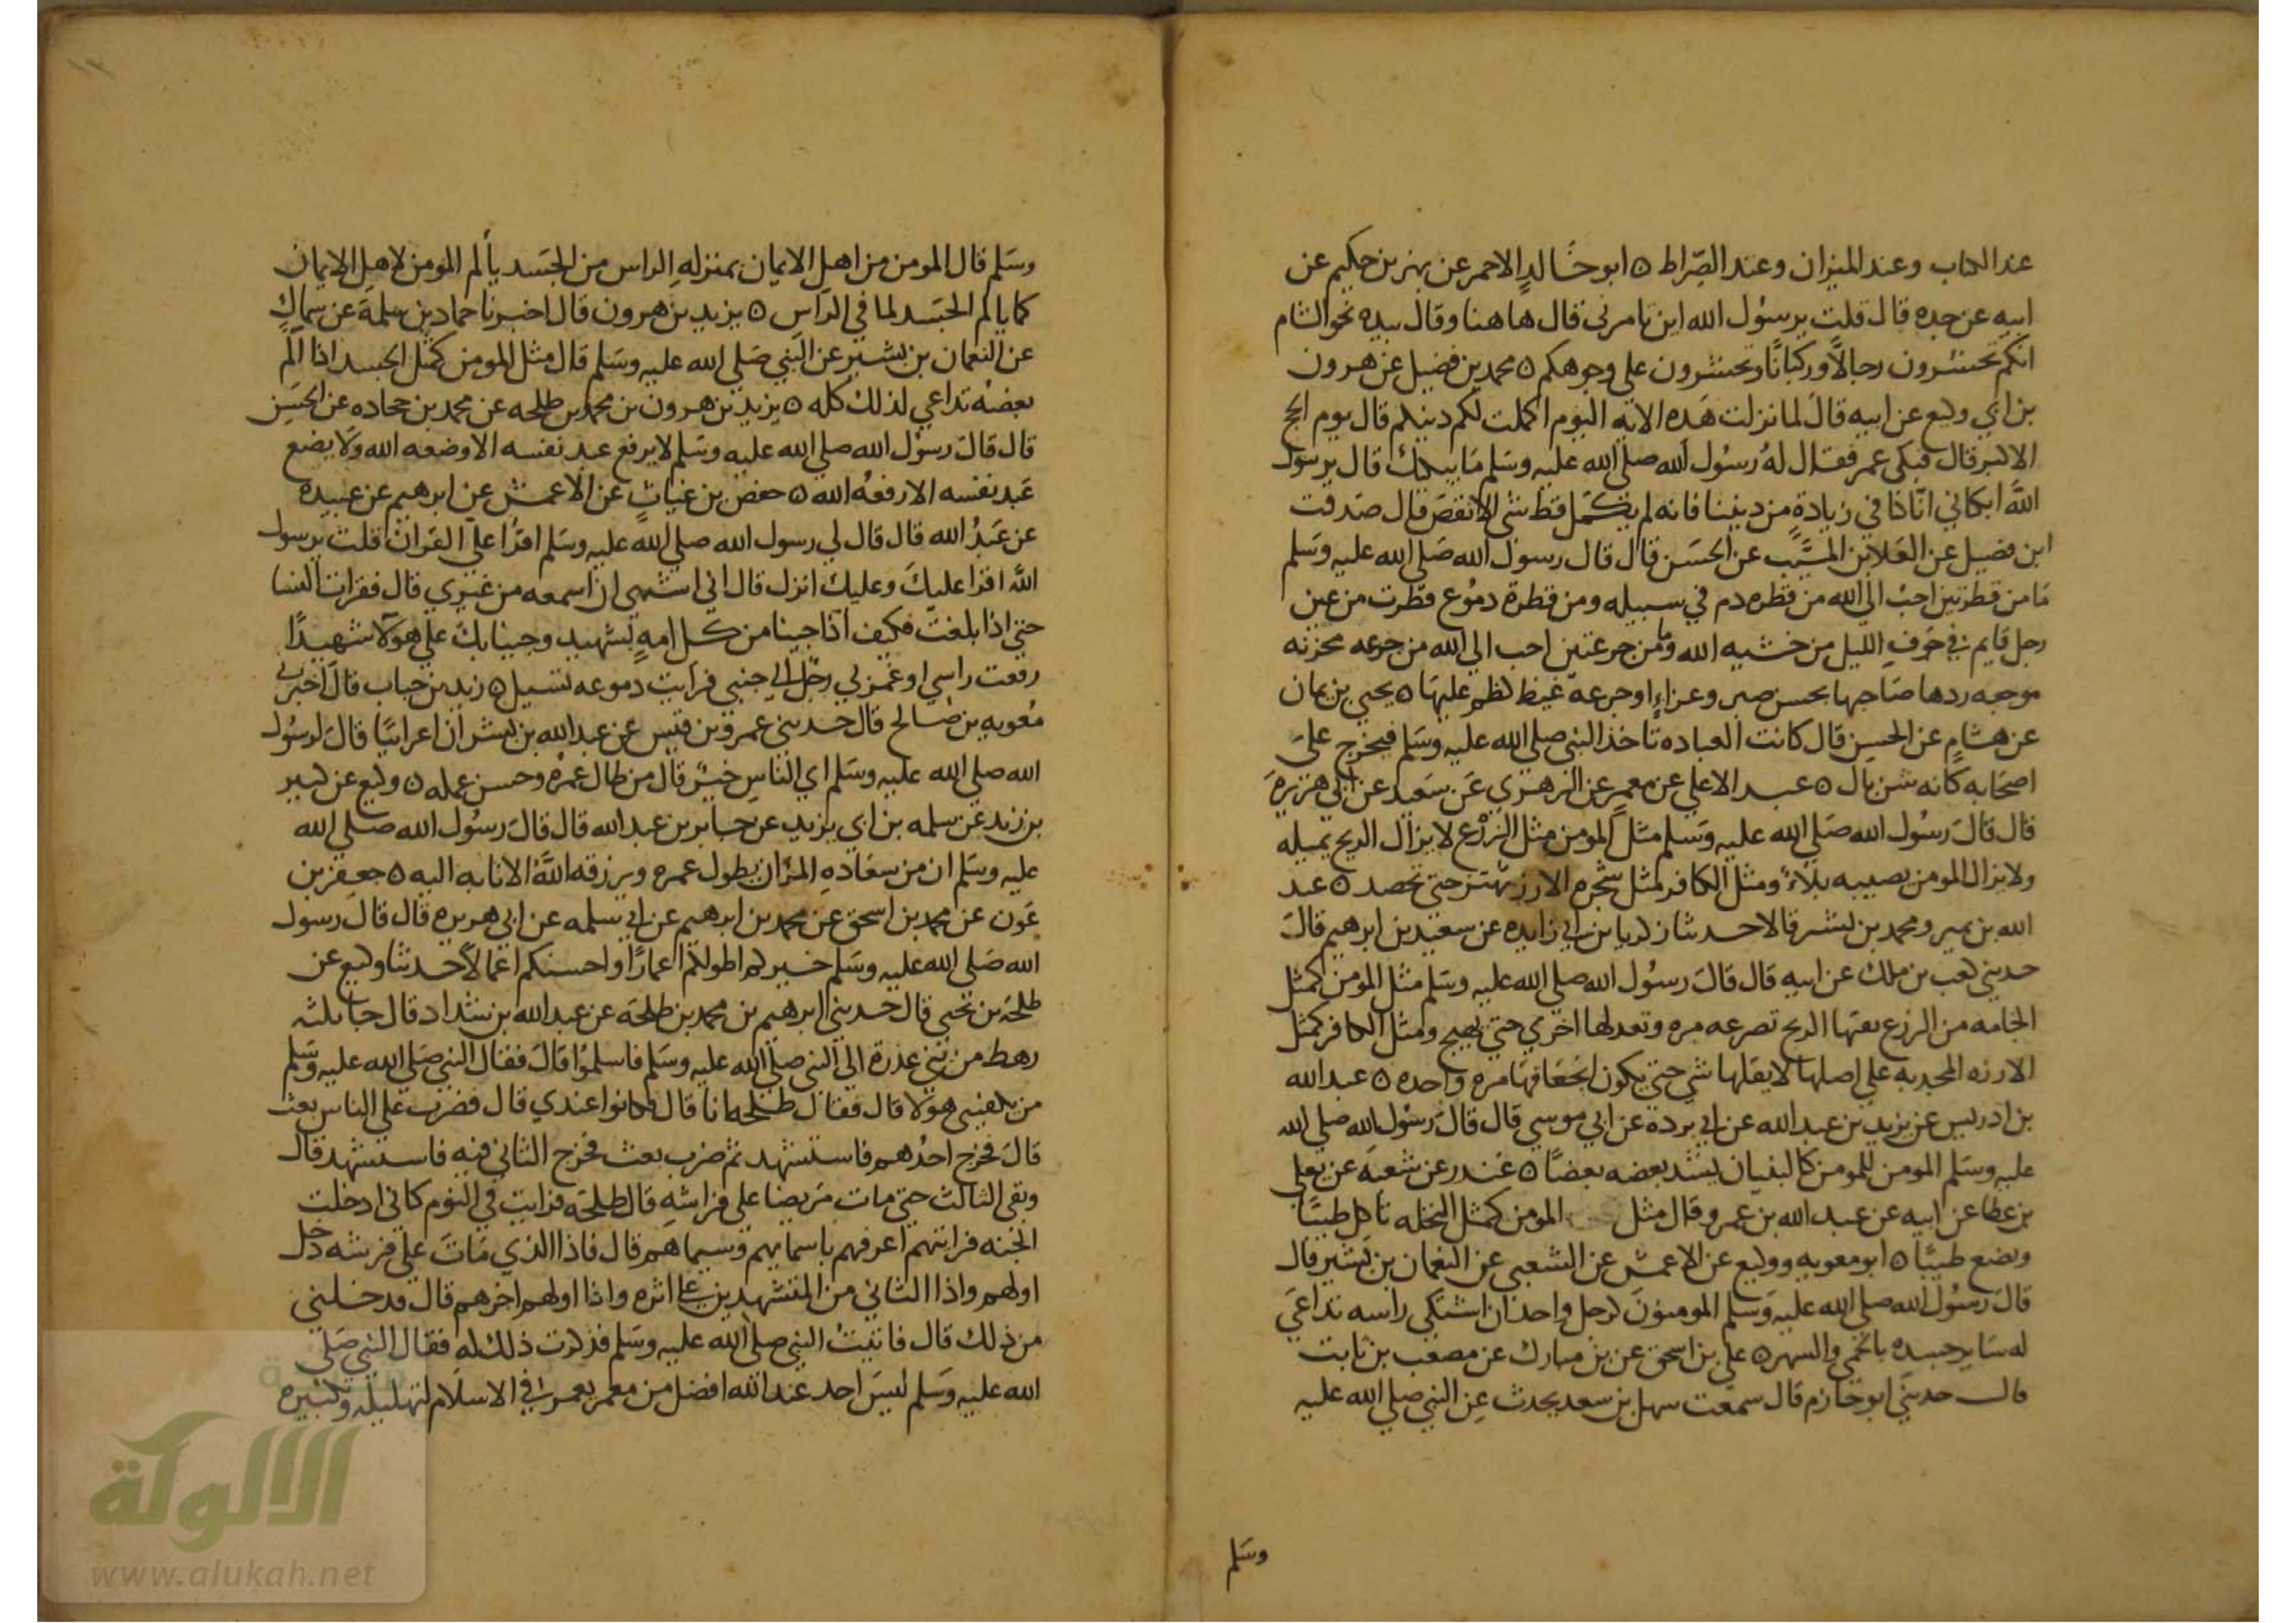 عند الكتاب وعند الميزان وعند الصراط ٥ ابو خالد الاحمر عن بهز بن حكيم عن
ابيه عن جده قال قلت يرسول الله اين تامرني قال هاهنا وقال بيده نحو الشام
انكم تحشرون رجالًا وركبانًا وتحشرون على وجوهكم ٥ محمد بن فضيل عن هرون
بن ابي وكيع عن ابيه قال لما نزلت هذه الاية اليوم اكملت لكم دينكم قال يوم الحج
الاكبر قال فبكى عمر فقال له رسول الله صلى الله عليه وسلم ما يبكيك قال يرسول
الله ابكاني انّا كنا في زيادةٍ من ديننا فانه لم يكمل قط شي الا نقص قال صدقت
ابن فضيل عن العلا بن المسيّب عن الحسن قال قال رسول الله صلى الله عليه وسلم
ما من قطرتين احب الى الله من قطره دم في سبيله ومن قطرة دموع قطرت من عين
رجل قايم في جوف الليل من خشيه الله وما من جرعتين احب الي الله من جرعه محزنه
موجعه ردها صاحبها بحسن صبر وعزاءٍ او جرعة غيظ كظم عليها ٥ يحيى بن يمان
عن هشام عن الحسن قال كانت العباده تاخذ النبي صلى الله عليه وسلم فيخرج على
اصحابه كانه شن بال ٥ عبد الاعلي عن معمر عن الزهري عن سعيد عن ابي هريرة
قال قال رسول الله صلى الله عليه وسلم مثل المومن مثل الزرع لا يزال الريح يميله
ولا يزال المومن يصيبه بلاء ومثل الكافر مثل شجره الارز تهتز حتي تحصد ٥ عبد
الله بن نمير ومحمد بن بشر قالا حدثنا زكريا بن ابي زايده عن سعيد بن ابرهيم قال
حدثني كعب بن ملك عن ابيه قال قال رسول الله صلى الله عليه وسلم مثل المومن كمثل
الخامه من الزرع تفيها الريح تصرعه مره وتعدلها اخري حتي يهيج ومثل الكافر كمثل
الارزه المجديه علي اصلها لا يقلها شي حتي يكون انجعافها مره واحده ٥ عبد الله
بن ادريس عن بزيد بن عبد الله عن ابي بردة عن ابي موسي قال قال رسول الله صلى الله
عليه وسلم المومن للمومن كالبنيان يشد بعضه بعضًا ٥ غندر عن شعبه عن يعلي
بن عطا عن ابيه عن عبد الله بن عمرو قال مثل المومن كمثل النخله تاكل طيبًا
وتضع طيبًا ٥ ابو معويه ووكيع عن الاعمش عن الشعبي عن النعمان بن بشير قال
قال رسول الله صلى الله عليه وسلم المومنون كرجل واحد ان اشتكي راسه تداعي
له ساير جسده بالحمي والسهر ٥ علي بن اسحق عن بن مبارك عن مصعب بن ثابت
قال حدثني ابو حازم قال سمعت سهل بن سعد يحدث عن النبي صلى الله عليه
وسلم
وسلم قال المومن من اهل الايمان بمنزله الراس من الجسد يألم المومن لاهل الايمان
كما يالم الجسد لما في الراس ٥ يزيد بن هرون قال اخبرنا حماد بن سلمة عن سماك
عن النعمان بن بشير عن النبي صلى الله عليه وسلم قال مثل المومن كمثل الجسد اذا الم
بعضه تداعي لذلك كله ٥ يزيد بن هرون بن محمد بن طلحه عن محمد بن جحاده عن الحسن
قال قال رسول الله صلى الله عليه وسلم لا يرفع عبد نفسه الا وضعه الله ولا يضع
عبد نفسه الا رفعه الله ٥ حفص بن غياث عن الاعمش عن ابرهيم عن عبيده
عن عبد الله قال قال لي رسول الله صلى الله عليه وسلم اقرا علي القران قلت يرسول
الله اقرا عليك وعليك انزل قال اني اشتهي ان اسمعه من غيري قال فقرات النسا
حتي اذا بلغت فكيف اذا جينا من كل امةٍ بشهيد وجينا بك علي هولا شهيدًا
رفعت راسي او غمزني رجل الي جنبي فرايت دموعه تسيل ٥ زيد بن حباب قال اخبرني
معويه بن صالح قال حدثني عمرو بن قيس عن عبد الله بن بشر ان اعرابيًا قال لرسول
الله صلى الله عليه وسلم اي الناس خير قال من طال عمره وحسن عمله ٥ وكيع عن كبير
بن زيد عن سلمه بن ابي يزيد عن جابر بن عبد الله قال قال رسول الله صلى الله
عليه وسلم ان من سعاده المرء ان يطول عمره ويرزقه الله الانابه اليه ٥ جعفر بن
عون عن محمد بن اسحق عن محمد بن ابرهيم عن ابي سلمه عن ابي هريره قال قال رسول
الله صلى الله عليه وسلم خيركم اطولكم اعمارًا واحسنكم اعمالًا حدثنا وكيع عن
طلحة بن يحيى قال حدثني ابرهيم بن محمد بن طلحة عن عبد الله بن شداد قال جا ثلثه
رهط من بني عذرة الي النبي صلى الله عليه وسلم فاسلموا قال فقال النبي صلى الله عليه وسلم
من يكفيني هولا قال فقال طلحه انا قال فكانوا عندي قال فضرب علي الناس بعث
قال فخرج احدهم فاستشهد ثم ضرب بعث فخرج الثاني فيه فاستشهد قال
وبقي الثالث حتي مات مريضا علي فراشه قال طلحة فرايت في النوم كاني ادخلت
الجنه فرايتهم اعرفهم باسمايهم وسيماهم قال فاذا الذي مات علي فرشه دخل
اولهم واذا الثاني من المتشهدين علي اثره واذا اولهم اخرهم قال فدخلني
من ذلك قال فاتيت النبي صلى الله عليه وسلم فذكرت ذلك له فقال النبي صلى
الله عليه وسلم ليس احد عند الله افضل من معمر يعمر في الاسلام لتهليله وتكبيره
الألوكة
www.alukah.net